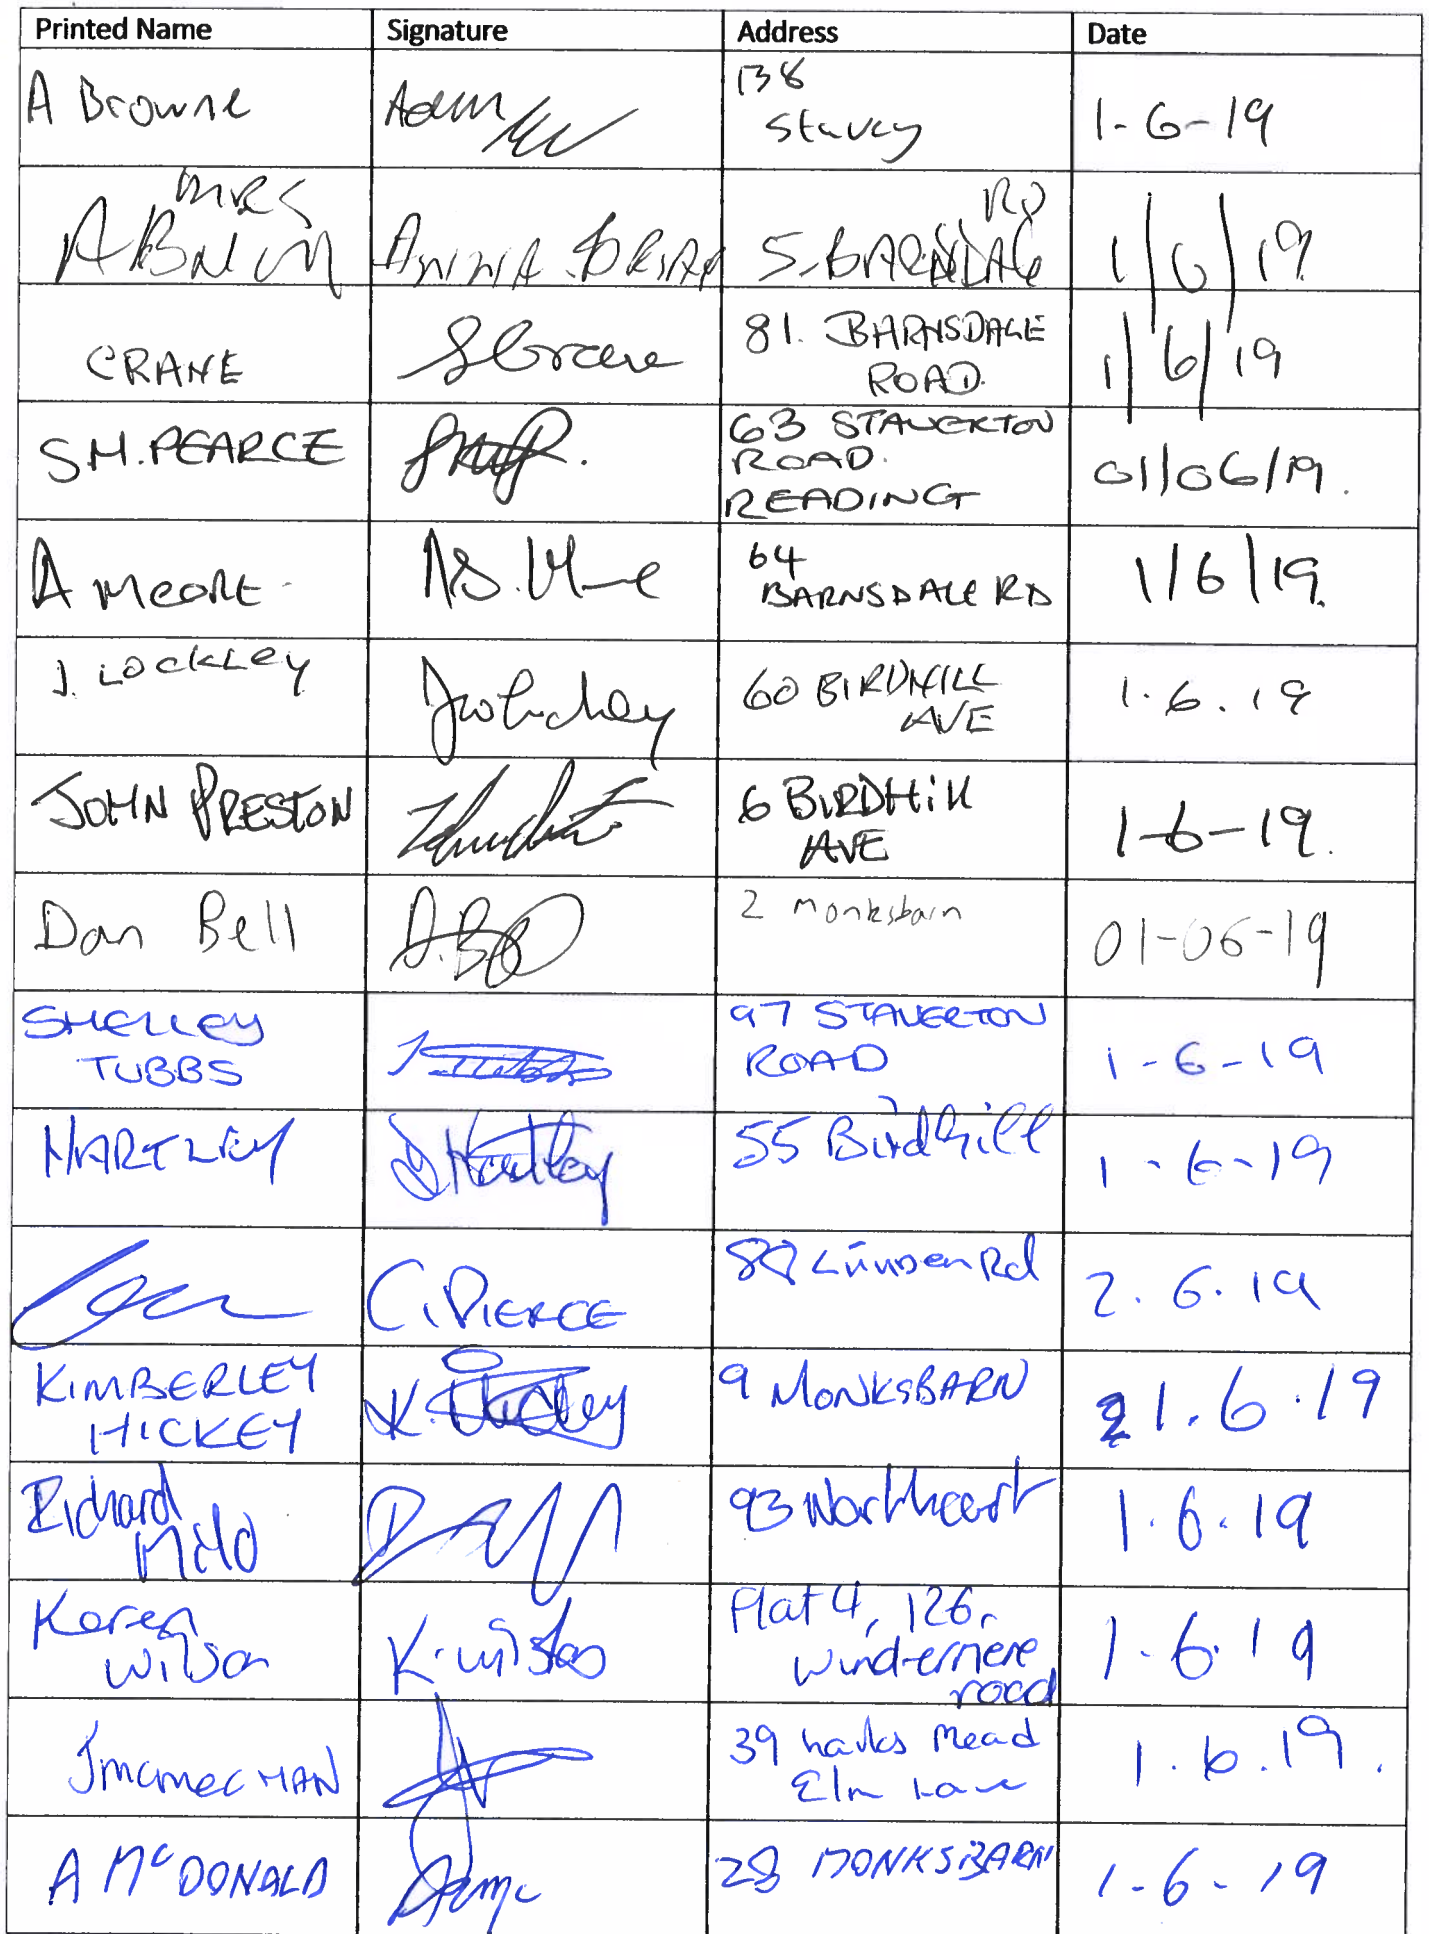 Printed Name Signature Address Date
A Browne Adam 138
1-6-19
MRS RD
A 5. 1/6/19
CRANE S Crane 81. BARNSDALE
ROAD. 1/6/19
S.H. PEARCE 63 STAVERTON
ROAD.
READING 01/06/19.
A MOORE 64
BARNSDALE RD 1/6/19.
J. LOCKLEY 60 BIRDHILL
AVE 1.6.19
JOHN PRESTON 6 BIRDHill
AVE 1-6-19.
Dan Bell 2 Monksbarn 01-06-19
SHELLEY
TUBBS 97 STAVERTON
ROAD 1-6-19
HARTLEY J Hartley 55 Birdhill 1-6-19
C. PIERCE Rd 2.6.19
KIMBERLEY
HICKEY K. Hickey 9 MONKSBARN 1.6.19
Richard 93 1.6.19
Karen
Wilson K. Flat 4, 126,
windermere
road 1.6.19
39 Mead
Elm Lane 1.6.19.
A McDONALD 28 MONKSBARN 1-6-19